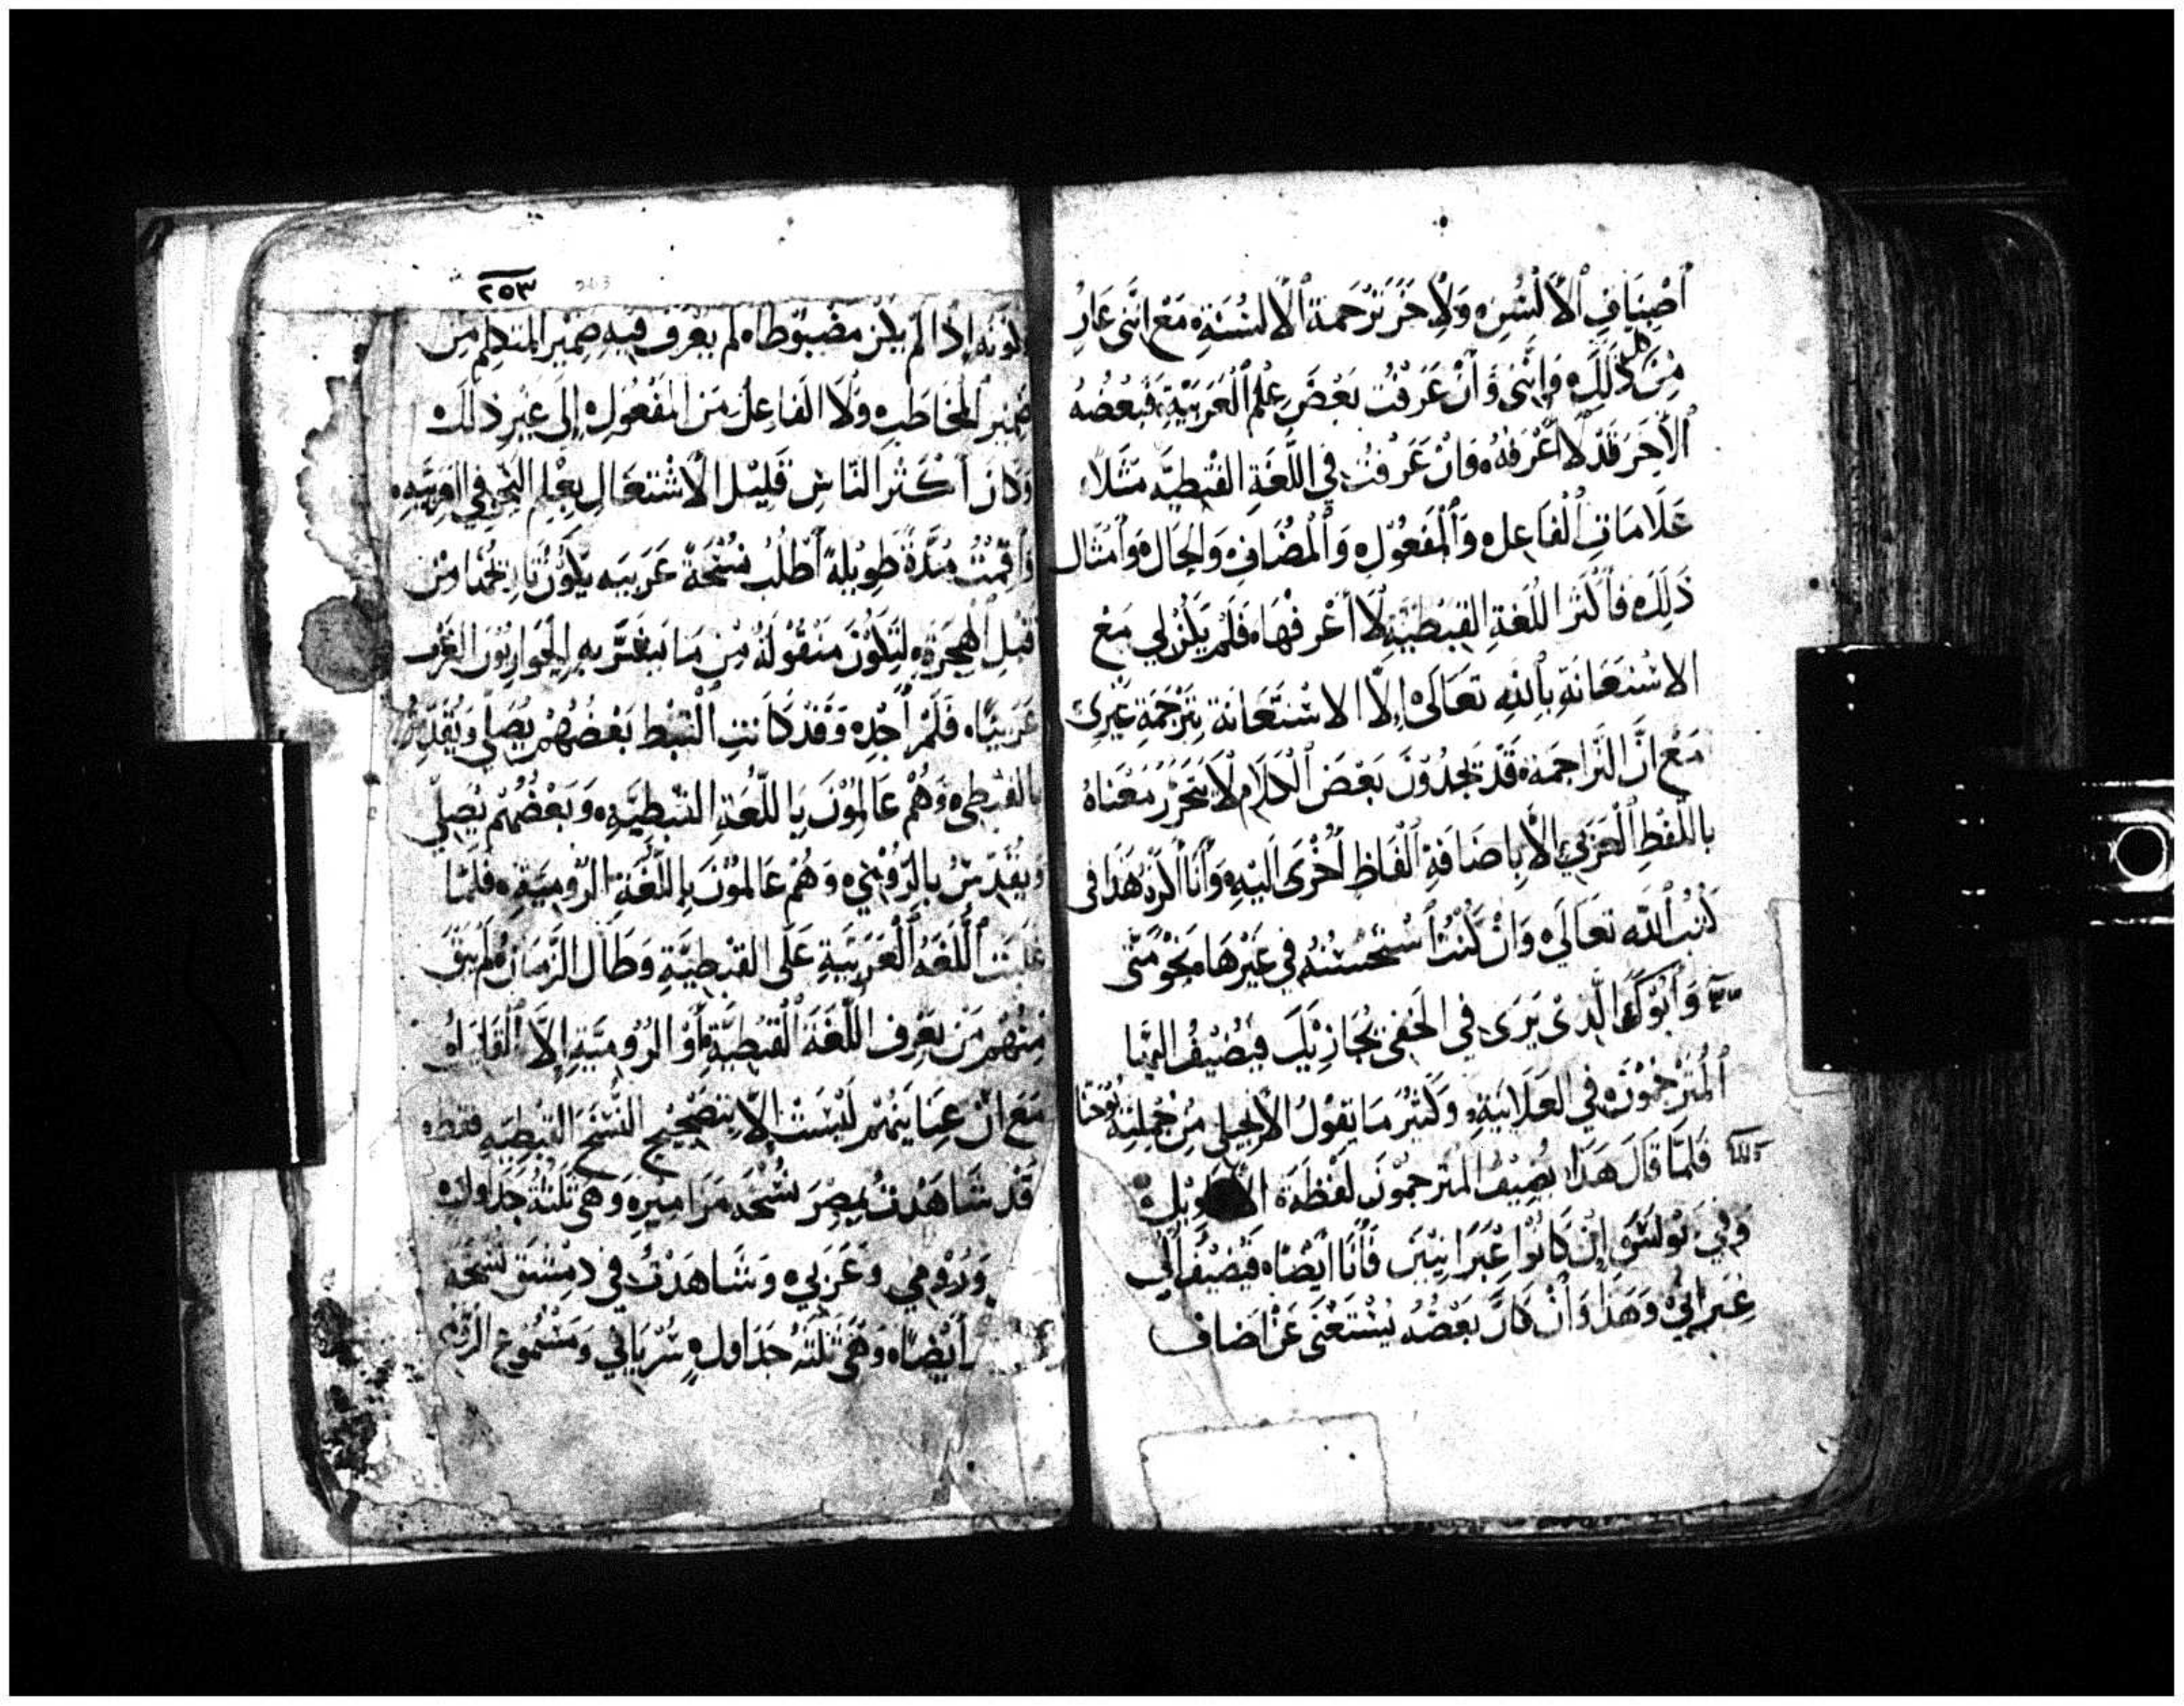 أَصْنَافِ ٱلْأَلْسُنِ وَلِأَخَّرَ تَرْجَمَةِ ٱلْأَلْسُنَةِ مَعَ انَّنِى عَارٍ
مِنْ كل ذَلِكَ وَانَّنِى وَأنْ عَرَفْتُ بَعْضَ عِلْمِ ٱلْعَرَبَيَّةِ فَبَعْضُهُ
ٱلْأَخَرَ قَدْ لَا أَعْرَفُهُ وَانْ عَرَفْتُ فِي اللُّغَةِ القْبَطيَّه مَثَلاً
عَلَامَاتِ ٱلْفَاعِل وَٱلْمَفْعُوْلِ وَٱلْمُضَافِ وَالحَال وَأَمْثَال
ذَلِكَ فَأَكْثَرَ اللُّغَةِ القِبْطيَّةِ لَا أَعْرِفْهَا فَلَمْ يَكُنْ لِي مَعْ
الاسْتَعَانَةِ بِاللهِ تَعَالَى إِلَّا الاسْتَّعَانَة بِتَرْجَمَةِ غَيْرِى
مَعْ انَّ التَّرَاجمَة قَدْ يَجدُوْنَ بَعْضَ ٱلْكَلَامِ لَا يَتَحَرَّرُ مَعْنَاهُ
باللَّفْظِ ٱلْعَرَبِي إلَّا بِاضَافَةِ ٱلْفَاظٍ أُخْرَى الَيْهِ وَأَنَا أَكْرَهُ هَذَا فى
كُتُبِ ٱللَّه تَعَالَى وَانْ كُنْتُ أسْتَحْسِنُهُ فِي غَيْرِهَا نَحْوَ مَتَّى
وَأَبُوْكَ الَّذِى يَرَى فِي الخَفِى يُجَازِيْكَ فَيُضِيْفُ اليْهَا
ٱلْمُتَرْجمُوْنَ فِي العَلَانِيَةِ وَكَثِيْرُ مَا يَقُوْلُ الأَنْجِيلي مِنْ جُمْلَتِهِ يُوْحَنَّا
فَلَمَّا قَالَ هَذَا يُضِيْفُ المُتَرْجمُوْنَ لَفْظَة
وَفِي بُوْلسَ إنْ كَانُوْا عِبْرَانِيْيَن فَأَنَا أيْضًا فَيُضِيْفُ إلَى
عِبْرَانِيٌّ وَهَذَا وَأنْ كَانَ بَعْضُهُ يُسْتَغْنَى عَنْ اضَاف
٢٥٣
لكونَه إذَا لَمْ يَكُنْ مضْبُوْطًا لم يُعْرَفْ فِيهِ ضَمِيْرُ المُتَكلِمِ مِنْ
ضَمِيْرِ ٱلْمُخَاطَبِ وَلَا الْفَاعِلُ مَنَ ٱلْمَفْعُولِ إِلَى غَيْرِ ذلكَ
وَكَانَ أَكْثَرُ النَّاسِ قَلِيْلَ الأشْتِغَالِ بِعِلْمِ النَّحْوِ فِي العَرَبَيِّهِ
وَأَقَمْتُ مُدَّةً طَوِيْلَةً أَطْلُبُ نُسْخَةً عَرَبِيَه يَكُوْنُ تَاريْخُهَا مِنْ
قَبْلِ الْهِجْرَةِ لِتَكُوْنَ مَنْقُوْلَةً مِنْ مَا بَشَّرَ بهِ الحَوَارِيُّوْنَ العَرَب
عَرَبِيًّا فَلَمْ أَجِدْه وَقَدْ كَانَتِ ٱلْقِبْط بَعْضُهُمْ يُصَلِّي وَيُقَدِّسُ
بالقِبْطِي وَهُمْ عَالمُوْنَ بِاللُّغَةِ القِبْطِيَّهِ وَبَعْضُهُمْ يُصَلِّي
وَيُقَدِّسُ بِالرُّوْمِيّ وَهُمْ عَالمُوْنَ بِاللُّغَةِ الرُّومِيَّةِ فَلَمَّا
غلَبَتِ ٱللُّغَةُ ٱلْعَرَبِيَةِ عَلَى القبْطِيَّةِ وَطَالَ الزَّمَانُ لَمْ يَبْقَ
مِنْهُمْ مَنْ يَعْرِف اللُّغَةَ الْقِبْطِيَّةِ أَوْ الرُّوْمِيَّةِ إِلَّا ٱلْقَلِيْل
مَعَ انَّ عِنَايَتَهُمْ لَيْسَتْ إِلَّا بِتَصْحِيْحِ النُّسَخ القِبْطِيَه فقط
قَدْ شَاهَدْتُ بِمِصْرَ نُسْخَه مَزَامِيْر وَهْىَ ثَلَثَةُ جَدَاوِل
وَرُوْمِي وَعَرَبِي وَشَاهَدْتُ فِي دمِشْق نُسْخَه
أَيْضًا وَهْىَ ثَلَثَة جَدَاوِل سُرْيَانِي وَمَشْمُوع